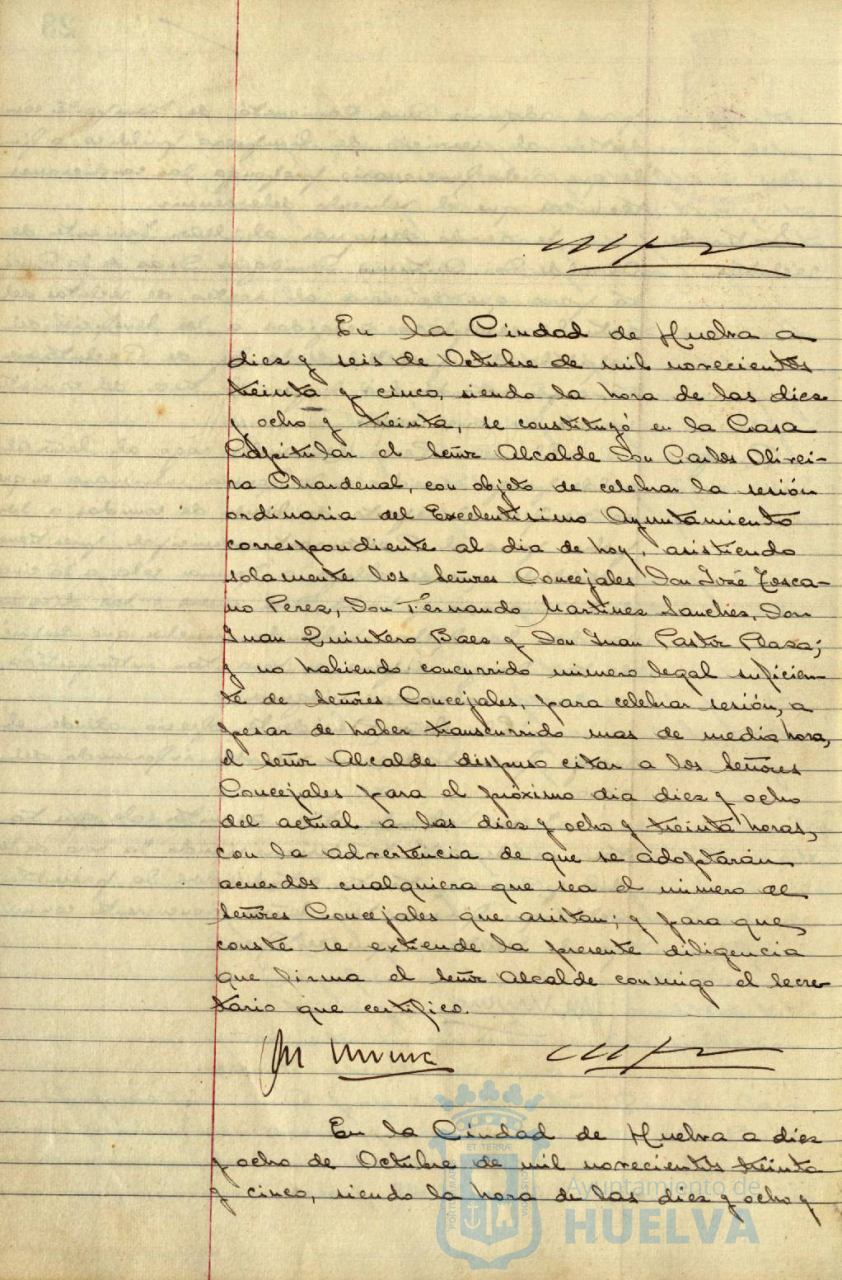 En la Ciudad de Huelva a
diez y seis de Octubre de mil novecientos
treinta y cinco, siendo la hora de las diez
y ocho y treinta, se constituyó en la Casa
Capitular el Señor Alcalde Don Carlos Olivei-
ra Chardenal, con objeto de celebrar la sesión
ordinaria del Excelentisimo Ayuntamiento
correspondiente al dia de hoy, asistiendo
solamente los Señores Concejales Don José Tosca-
no Perez, Don Fernando Martinez Sanchez, Don
Juan Quintero Baez y Don Juan Pastor Plaza;
y no habiendo concurrido número legal suficien-
te de Señores Concejales, para celebrar sesión, a
pesar de haber transcurrido mas de media hora,
el Señor Alcalde dispuso citar a los Señores
Concejales para el próximo dia diez y ocho
del actual a las diez y ocho y treinta horas,
con la advertencia de que se adoptarán
acuerdos cualquiera que sea el número de
Señores Concejales que asistan; y para que
conste se extiende la presente diligencia
que firma el Señor Alcalde conmigo el Secre-
tario que certifico.
En la Ciudad de Huelva a diez
y ocho de Octubre de mil novecientos treinta
y cinco, siendo la hora de las diez y ocho y
Ayuntamiento de
HUELVA